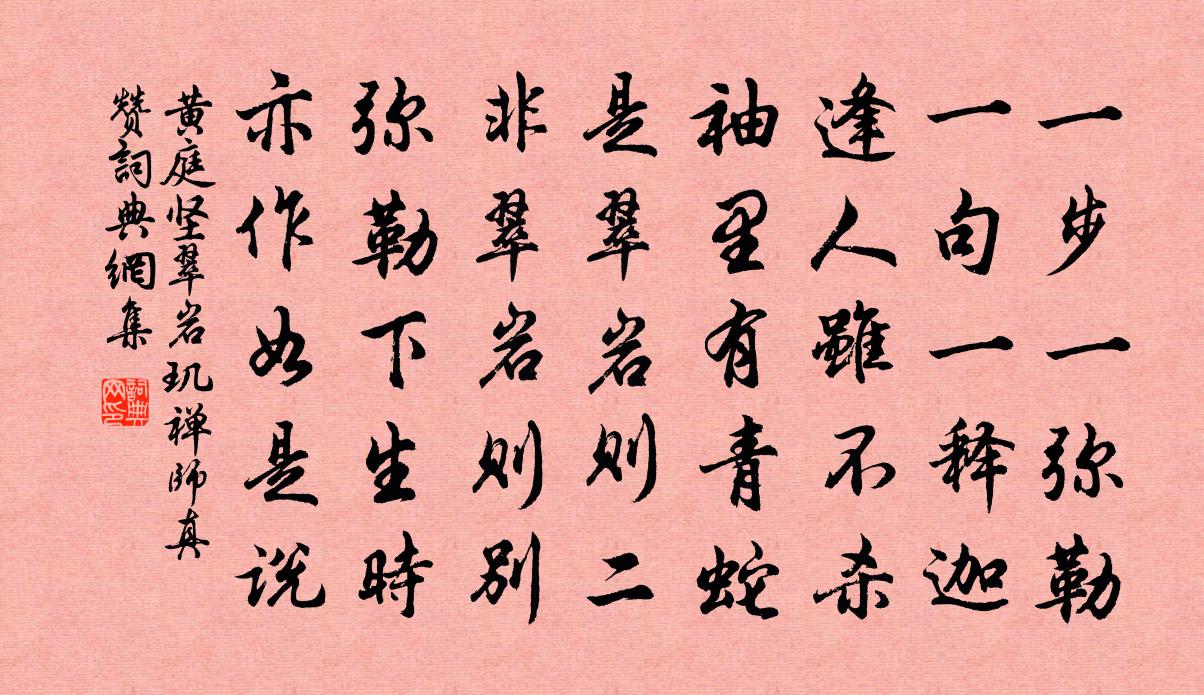 一步一弥勒
一句一释迦
逢人雖不杀
袖里有青蛇
是翠岩则二
非翠岩则别
弥勒下生時
亦作如是说
黄庭坚翠岩玑禅師真
赞詞典網集
詞典
网印